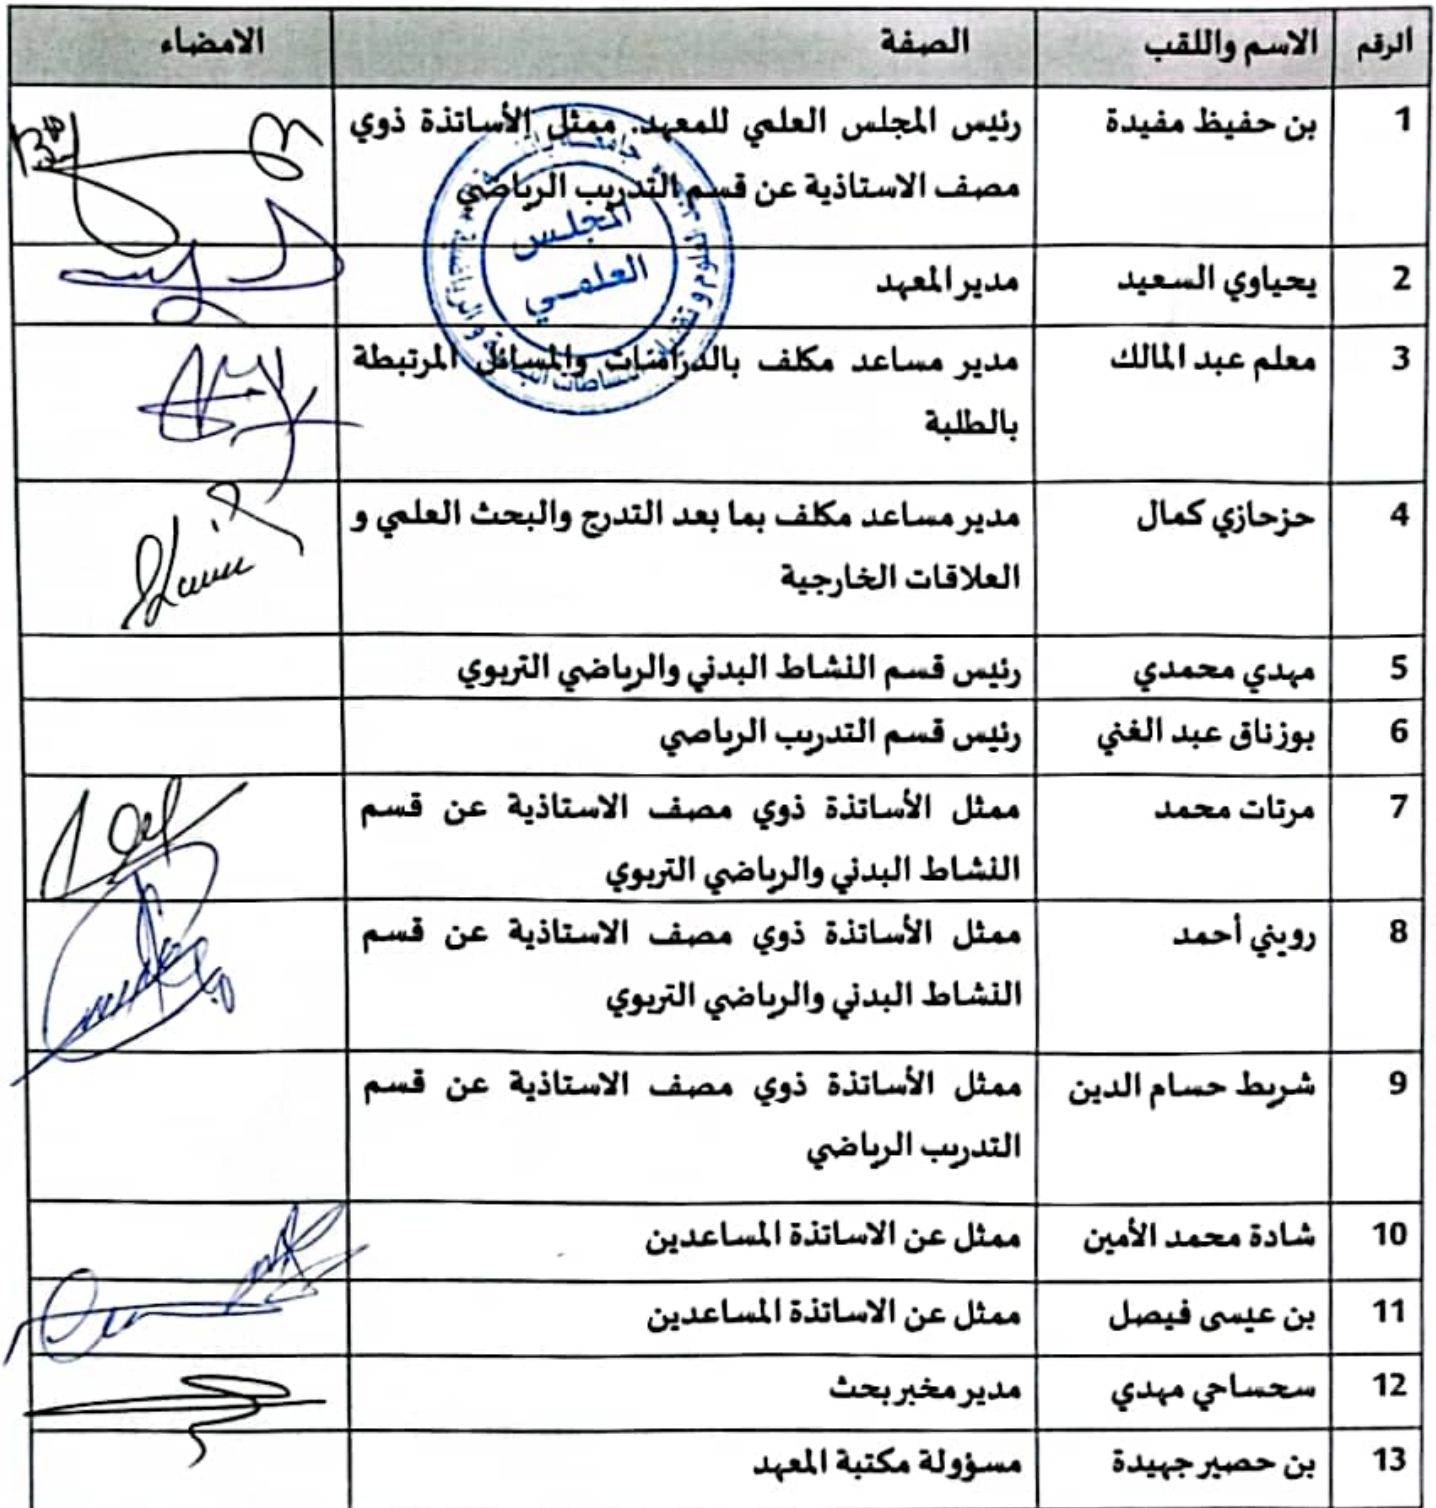 الرقم الاسم واللقب الصفة الامضاء
1 بن حفيظ مفيدة رئيس المجلس العلمي للمعهد. ممثل الأساتذة ذوي
مصف الاستاذية عن قسم التدريب الرياضي
المجلس
العلمي
2 يحياوي السعيد مدير المعهد
3 معلم عبد المالك مدير مساعد مكلف بالدراسات والمسائل المرتبطة
بالطلبة
4 حزحازي كمال مدير مساعد مكلف بما بعد التدرج والبحث العلمي و
العلاقات الخارجية
5 مهدي محمدي رئيس قسم النشاط البدني والرياضي التربوي
6 بوزناق عبد الغني رئيس قسم التدريب الرياصي
7 مرتات محمد ممثل الأساتذة ذوي مصف الاستاذية عن قسم
النشاط البدني والرياضي التربوي
8 رويني أحمد ممثل الأساتذة ذوي مصف الاستاذية عن قسم
النشاط البدني والرياضي التربوي
9 شريط حسام الدين ممثل الأساتذة ذوي مصف الاستاذية عن قسم
التدريب الرياضي
10 شادة محمد الأمين ممثل عن الاساتذة المساعدين
11 بن عيسى فيصل ممثل عن الاساتذة المساعدين
12 سحساحي مهدي مدير مخبر بحث
13 بن حصير جهيدة مسؤولة مكتبة المعهد